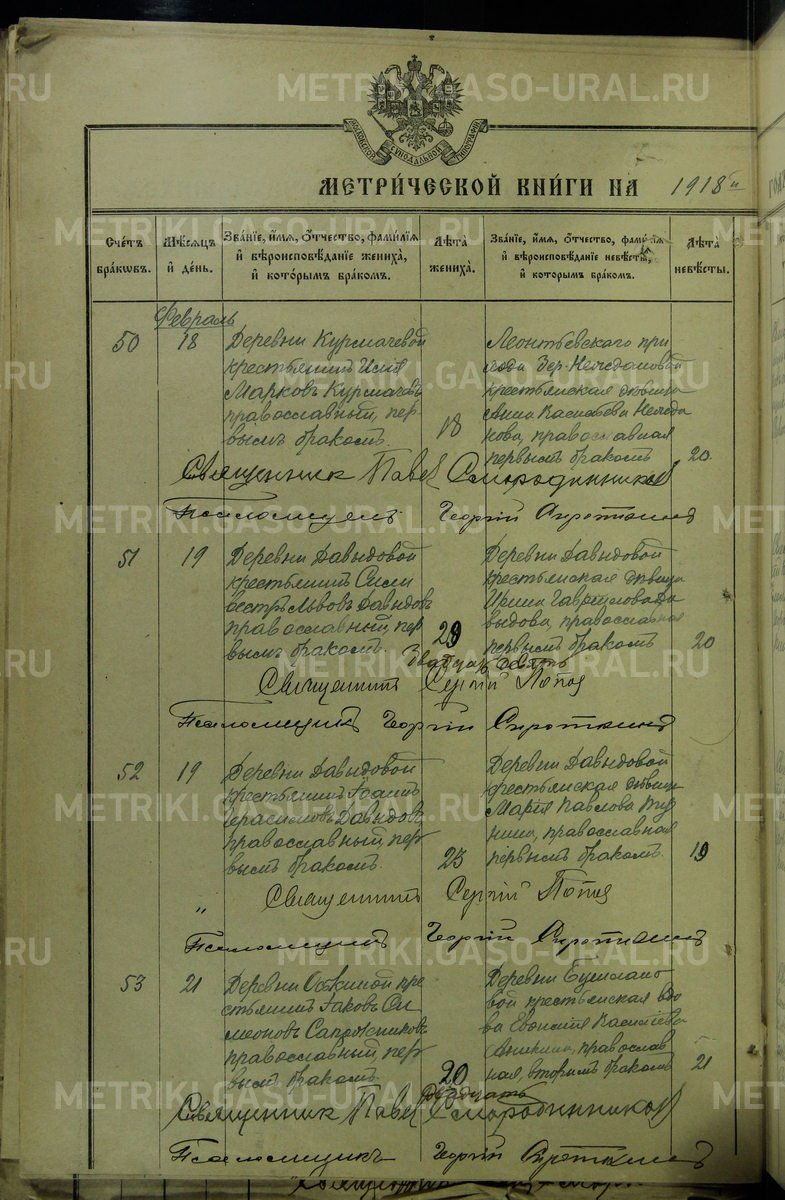 METRIKI.GASO-URAL.RU
МОСКОВСКОЙ СѴНОДАЛЬНОЙ ТИПОГРАФІИ
МЕТРИ́ЧЕСКОЙ КНИ́ГИ НА 1918 й
Сче́тъ бра́ковъ.
Мѣ́сяцъ и҆ де́нь.
Зва́нїе, и҆́мя, ѻ҆́тчество, фами́лїя и҆ вѣроисповѣ́данїе жениха̀, и҆ кото́рымъ бра́комъ.
Лѣ́та жениха̀.
Зва́нїе, и҆́мя, ѻ҆́тчество, фами́лїя и҆ вѣроисповѣ́данїе невѣ́сты, и҆ кото́рымъ бра́комъ.
Лѣ́та невѣ́сты.
Февраль
50
18
Деревни Курмачевой
крестьянинъ
Марковъ Курмачевъ
православный, пер
вымъ бракомъ.
18
Леонтьевскаго при
хода дер.
крестьянская дѣвица
Анна Васильева
нова, православная
первымъ бракомъ
20.
Священник Павел Смородинников
Псаломщикъ Георгій Сироткинъ
51
19
Деревни Давыдовой
крестьянинъ Сили
вестръ Львовъ Давыдовъ
православный, пер
вымъ бракомъ.
29
Двадцать девять
Деревни Давыдовой
крестьянская дѣвица
Ирина Гаврилова Да
выдова, православная
первымъ бракомъ
20
Священникъ Сергій Попов
Псаломщикъ Георгій Сироткинъ
52
19
Деревни Давыдовой
крестьянинъ Іоаннъ
Герасимовъ Давыдовъ
православный, пер
вымъ бракомъ.
23
Деревни Давыдовой
крестьянская дѣвица
Марія Павлова
православная
первымъ бракомъ.
19
Священникъ Сергій Попов
"
Псаломщикъ Георгій Сироткинъ
53
21
Деревни кре
стьянинъ Іаковъ Си
меоновъ Сапожниковъ
православный, пер
вымъ бракомъ
20
двадцать
Деревни
вой крестьянская вдо
ва Васильева
Аникина, православ
ная, вторымъ бракомъ
21
Священник Павел Смородинников
Псаломщикъ Георгій Сироткинъ